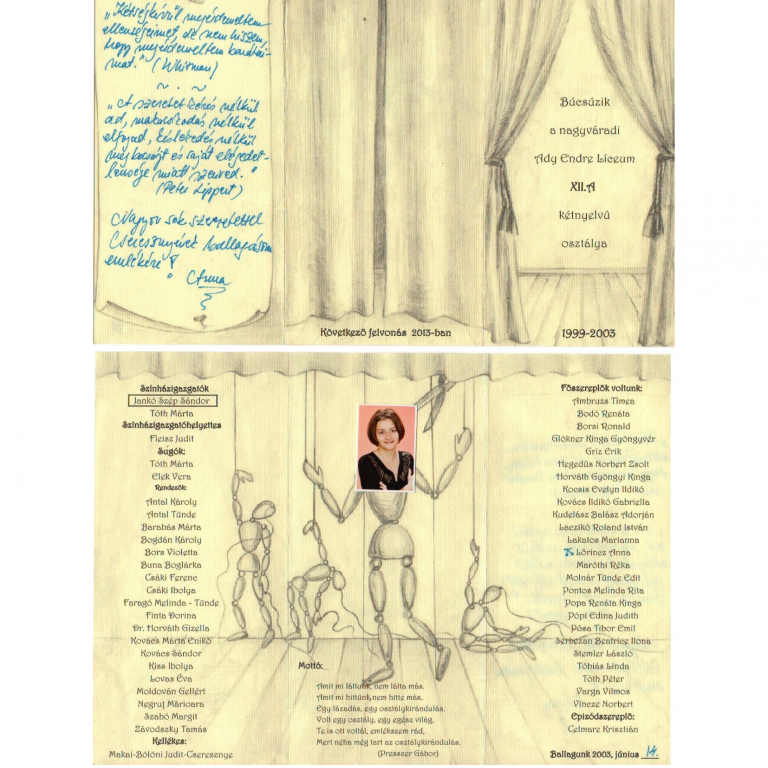 „Kétségkívül megérdemeltem
ellenségeimet, de nem hiszem,
hogy megérdemeltem barátai-
mat." (Whitman)
~ . ~
„A szeretet kérés nélkül
ad, makacskodás nélkül
elfogad, késlekedés nélkül
megbocsájt és saját elégedet-
lensége miatt szenved."
(Peter Lippert)
Nagyon sok szeretettel
Cseresznyének ballagásom
emlékére!
Anna
Következő felvonás 2013-ban
Búcsúzik
a nagyváradi
Ady Endre Líceum
XII.A
kétnyelvű
osztálya
1999-2003
Színházigazgatók
Jankó Szép Sándor
Tóth Márta
Színházigazgatóhelyettes
Fleisz Judit
Súgók:
Tóth Márta
Elek Vera
Rendezők:
Antal Károly
Antal Tünde
Barabás Márta
Bogdán Károly
Bors Violetta
Buna Boglárka
Csáki Ferenc
Csáki Ibolya
Faragó Melinda - Tünde
Finta Dorina
Dr. Horváth Gizella
Kovács Márta Enikő
Kovács Sándor
Kiss Ibolya
Lovas Éva
Moldován Gellért
Negruț Mărioara
Szabó Margit
Závodszky Tamás
Kellékes:
Makai-Bölöni Judit-Cseresznye
Mottó:
Amit mi láttunk, nem látta más.
Amit mi hittünk, nem hitte más.
Egy lázadás, egy osztálykirándulás.
Volt egy osztály, egy egész világ,
Te is ott voltál, emlékszem rád,
Mert néha még tart az osztálykirándulás.
(Presszer Gábor)
Főszereplők voltunk:
Ambruzs Tímea
Bodó Renáta
Borsi Ronald
Glökner Kinga Gyöngyvér
Gríz Erik
Hegedűs Norbert Zsolt
Horváth Gyöngyi Kinga
Kocsis Evelyn Ildikó
Kovács Ildikó Gabriella
Kudelász Balász Adorján
Laczikó Roland István
Lakatos Marianna
Lőrincz Anna
Maróthi Réka
Molnár Tünde Edit
Pontos Melinda Rita
Popa Renáta Kinga
Pópi Edina Judith
Pósa Tibor Emil
Serbezan Beatrice Ilona
Stemler László
Tóbiás Linda
Tóth Péter
Varga Vilmos
Vincze Norbert
Epizódszereplő:
Celmare Krisztián
Ballagunk 2003, június 14.